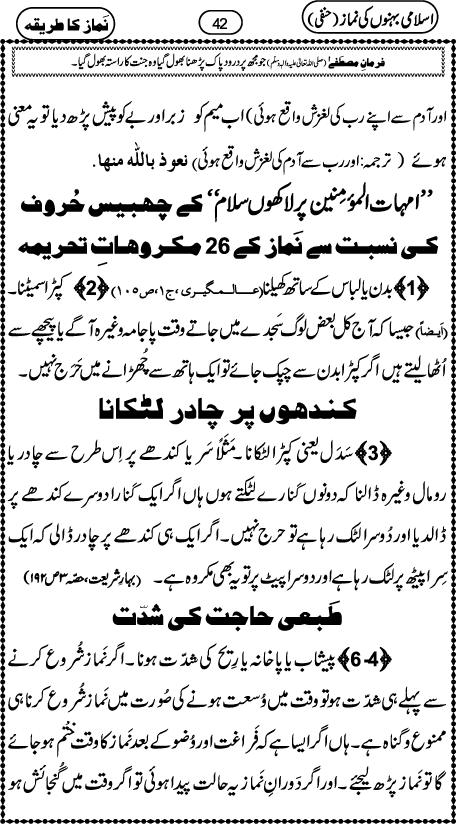 اسلامی بہنوں کی نماز (حنفی)
42
نماز کا طریقہ
فرمانِ مصطفےٰ (صلی اللہ تعالیٰ علیہ والہٖ وسلم) جو مجھ پر درود پاک پڑھنا بھول گیا وہ جنت کا راستہ بھول گیا۔
اور آدم سے اپنے رب کی لغزش واقع ہوئی) اب میم کو زبر اور بے کو پیش پڑھ دیا تو یہ معنی
ہوئے (ترجمہ: اور رب سے آدم کی لغزش واقع ہوئی) نعوذ باللہ منھا.
’’امہات المؤمنین پر لاکھوں سلام‘‘ کے چھبیس حُروف
کی نسبت سے نماز کے 26 مکروھاتِ تحریمہ
﴿1﴾ بدن یا لباس کے ساتھ کھیلنا (عالمگیری، ج۱، ص۱۰۵) ﴿2﴾ کپڑا سمیٹنا۔
(ایضاً) جیسا کہ آج کل بعض لوگ سَجدے میں جاتے وقت پاجامہ وغیرہ آگے یا پیچھے سے
اُٹھا لیتے ہیں اگر کپڑا بدن سے چپک جائے تو ایک ہاتھ سے چُھڑانے میں حَرَج نہیں۔
کندھوں پر چادر لٹکانا
﴿3﴾ سَدَل یعنی کپڑا لٹکانا۔ مَثَلاً سر یا کندھے پر اِس طرح سے چادر یا
رومال وغیرہ ڈالنا کہ دونوں کَنارے لٹکتے ہوں ہاں اگر ایک کَنارا دوسرے کندھے پر
ڈالدیا اور دُوسرا لٹک رہا ہے تو حرج نہیں۔ اگر ایک ہی کندھے پر چادر ڈالی کہ ایک
سِرا پیٹھ پر لٹک رہا ہے اور دوسرا پیٹ پر تو یہ بھی مکروہ ہے۔ (بہارِ شریعت، حصّہ ۳ ص۱۹۲)
طَبعی حاجت کی شدّت
﴿6-4﴾ پیشاب یا پاخانہ یا رِیح کی شدّت ہونا۔ اگر نَماز شُروع کرنے
سے پہلے ہی شدّت ہو تو وقت میں وُسعت ہونے کی صُورت میں نَماز شُروع کرنا ہی
ممنوع و گناہ ہے۔ ہاں اگر ایسا ہے کہ فَراغت اور وُضو کے بعد نَماز کا وقت ختْم ہو جائے
گا تو نَماز پڑھ لیجئے۔ اور اگر دَورانِ نَماز یہ حالت پیدا ہوئی تو اگر وقت میں گُنجائش ہو